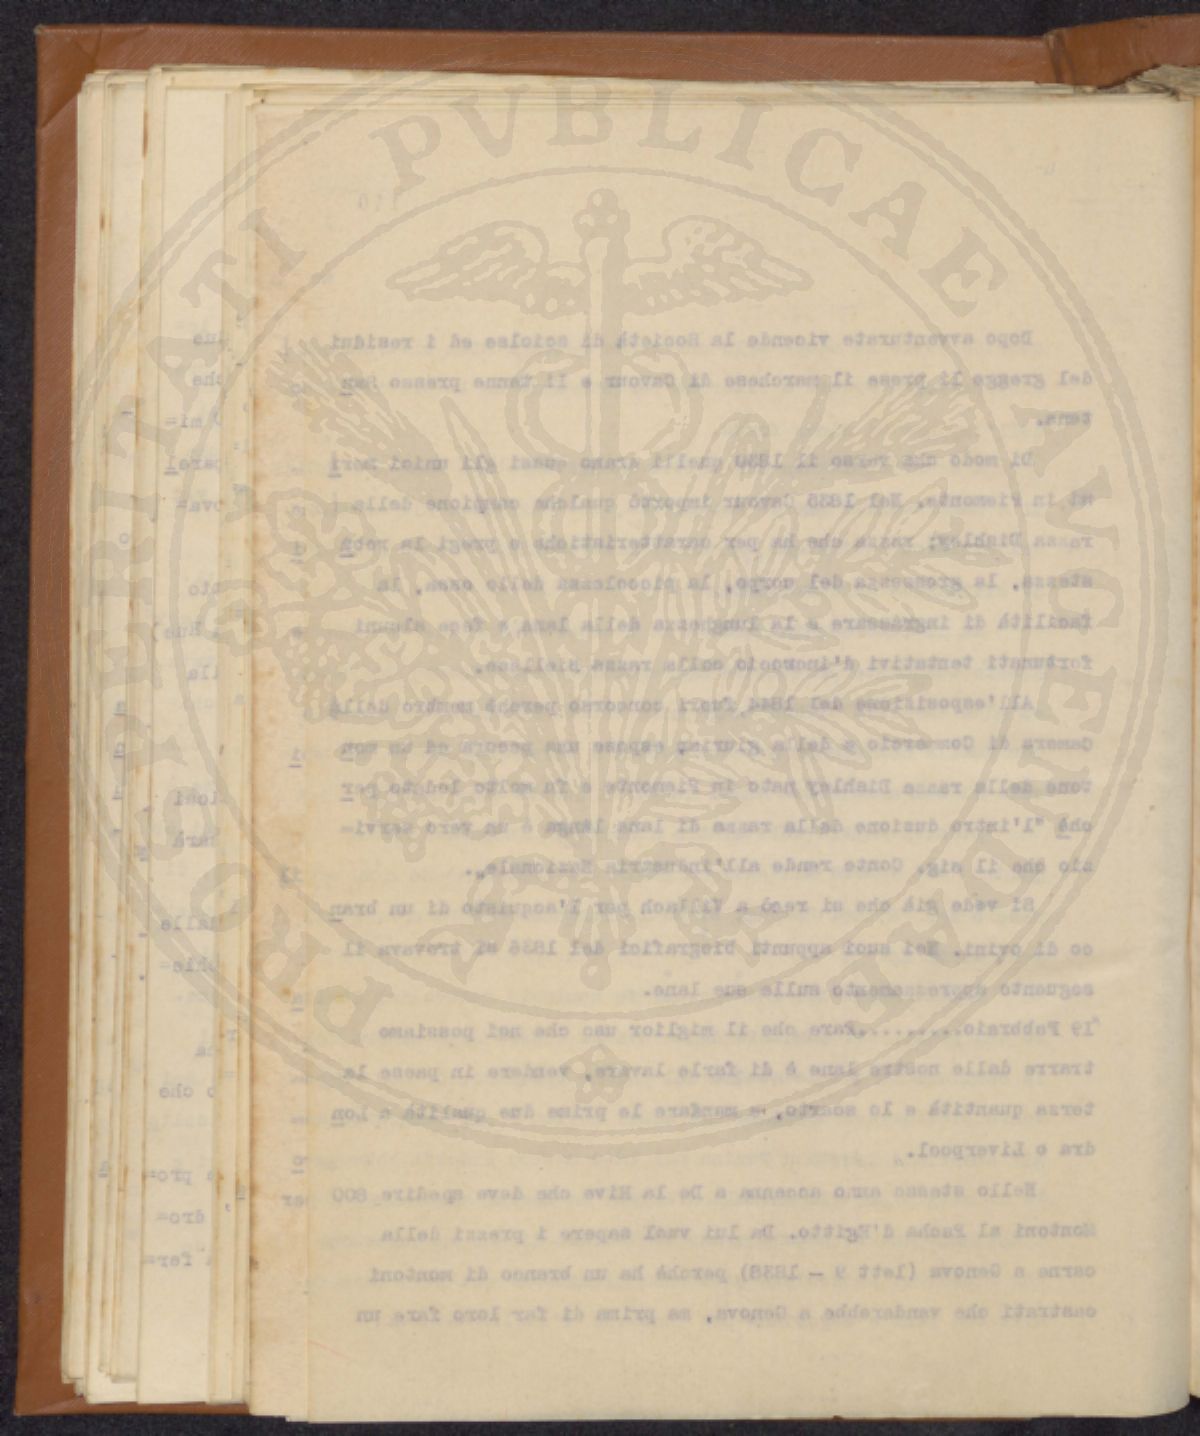 PROSPERITATI PVBLICAE AVGENDAE
110
Dopo avventurate vicende la Società di sciolse ed i residui
del gregge li prese il marchese di Cavour e li tenne presso San
tena.
Di modo che verso il 1830 quelli erano quasi gli unici meri
ni in Piemonte. Nel 1835 Cavour importò qualche campione della
razza Dishley; razza che ha per caratteristiche e pregi la robu
stezza, la grossezza del corpo, la piccolezza dello ossa, la
facilità di ingrassare e la lunghezza della lana e fece alcuni
fortunati tentativi d'incrocio colla razza Biellese.
All'esposizione del 1844 fuori concorso perchè membro della
Camera di Commercio e della giuria, espose una pecora ed un mon
tone della razza Dishley nato in Piemonte e fu molto lodato per
chè "l'intro duzione della razza di lana lunga è un vero servi=
zio che il sig. Conte rende all'industria Nazionale".
Si vede già che si recò a Villach per l'acquisto di un bran
co di ovini. Nei suoi appunti biografici del 1836 si trovava il
seguento apprezzamento sulle sue lane.
"19 Febbraio..........Pare che il miglior uso che noi possiamo
trarre dalle nostre lane è di farle lavare, vendere in paese la
terza quantità e lo scarto, e mandare le prime due qualità a Lon
dra o Liverpool."
Nello stesso anno accenna a De la Rive che deve spedire 800
Montoni al Pacha d'Egitto. Da lui vuol sapere i prezzi della
carne a Genova (lett 9 - 1838) perchè ha un branco di montoni
castrati che venderebbe a Genova, ma prima di far loro fare un